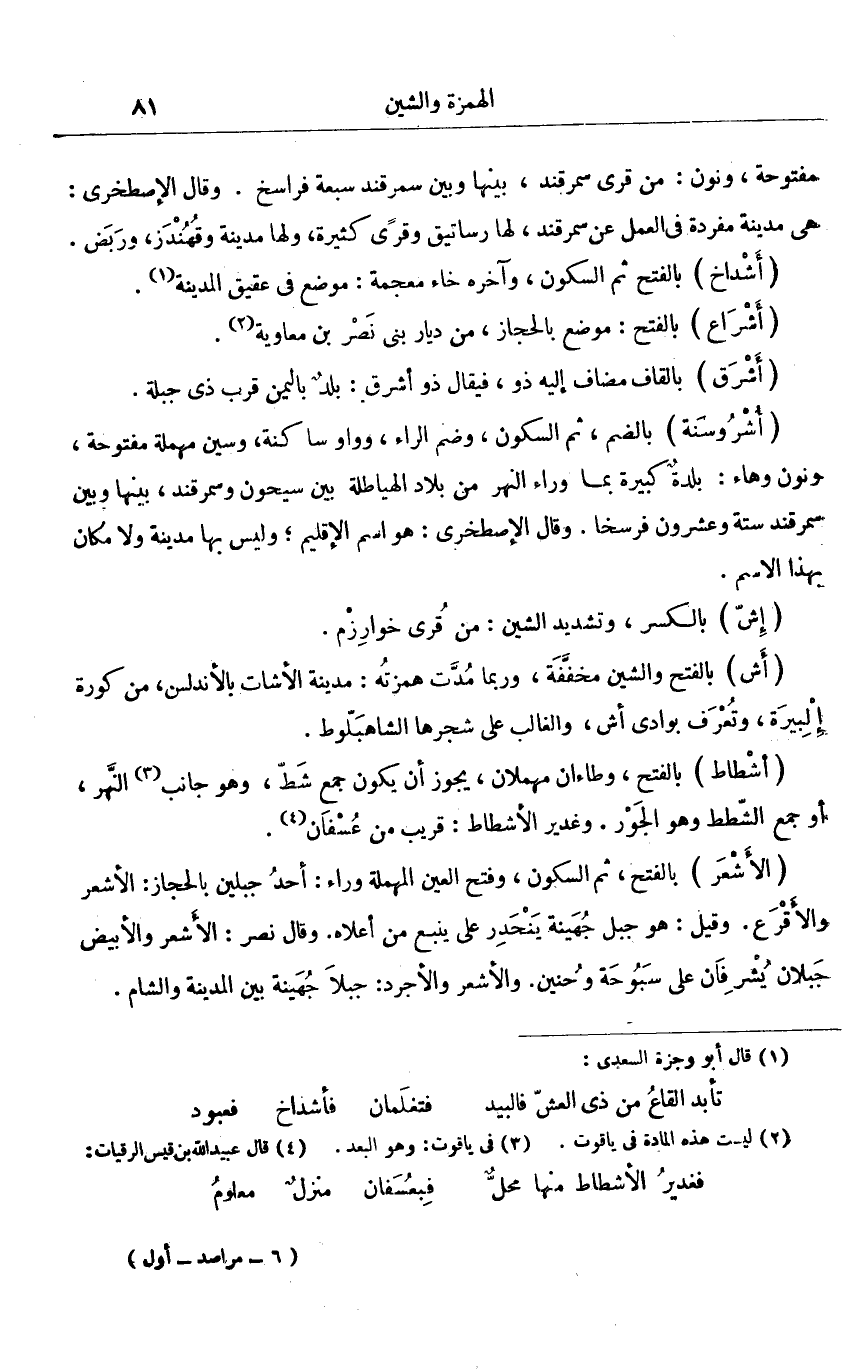 الهمزة والشين ٨١
مفتوحة ، ونون : من قرى سمرقند ، بينها وبين سمرقند سبعة فراسخ . وقال الإصطخرى :
هى مدينة مفردة فى العمل عن سمرقند ، لها رساتيق وقرًى كثيرة، ولها مدينة وقُهُنْدَز، ورَبَض .
( أَشْداخ ) بالفتح ثم السكون ، وآخره خاء معجمة : موضع فى عقيق المدينة(١) .
( أَشْرَاع ) بالفتح : موضع بالحجاز ، من ديار بنى نَصْر بن معاوية(٢) .
( أَشْرَق ) بالقاف مضاف إليه ذو ، فيقال ذو أشرق : بلدٌ باليمن قرب ذى جبلة .
( أُشْرُوسَنَة ) بالضم ، ثم السكون ، وضم الراء ، وواو ساكنة، وسين مهملة مفتوحة ،
ونون وهاء : بلدةٌ كبيرة بما وراء النهر من بلاد الهياطلة بين سيحون وسمرقند ، بينها وبين
سمرقند ستة وعشرون فرسخا . وقال الإصطخرى : هو اسم الإقليم ؛ وليس بها مدينة ولا مكان
بهذا الاسم .
( إِشّ ) بالكسر ، وتشديد الشين : من قُرى خوارِزْم .
( أَش ) بالفتح والشين مخففَّة ، وربما مُدَّت همزتُه : مدينة الأشات بالأندلس، من كورة
إِلْبِيرَة ، وتُعْرَف بوادى أش ، والغالب على شجرها الشاهبَلّوط .
( أشْطاط ) بالفتح ، وطاءان مهملان ، يجوز أن يكون جمع شَطّ ، وهو جانب(٣) النَّهر ،
أو جمع الشَّطط وهو الجَوْر . وغدير الأشطاط : قريب من عُسْفَان(٤) .
( الأَشْعَر ) بالفتح ، ثم السكون ، وفتح العين المهملة وراء : أحدُ جبلين بالحجاز: الأشعر
والأَقْرَع . وقيل : هو جبل جُهَينة يَنْحَدِر على ينبع من أعلاه. وقال نصر : الأَشعر والأبيض
جَبلان يُشْرِفَان على سَبُوحَة وحُنين. والأشعر والأجرد: جبلاَ جُهَينة بين المدينة والشام .
(١) قال أبو وجزة السعدى :
تأبد القاعُ من ذى العشّ فالبيد فتغلَمان فأشداخ فعبود
(٢) ليست هذه المادة فى ياقوت . (٣) فى ياقوت: وهو البعد . (٤) قال عبيد الله بن قيس الرقيات:
فغديرُ الأشطاط منها محلٌّ فبِعسَفان منزلٌ معلومُ
( ٦ ــ مراصد ــ أول )